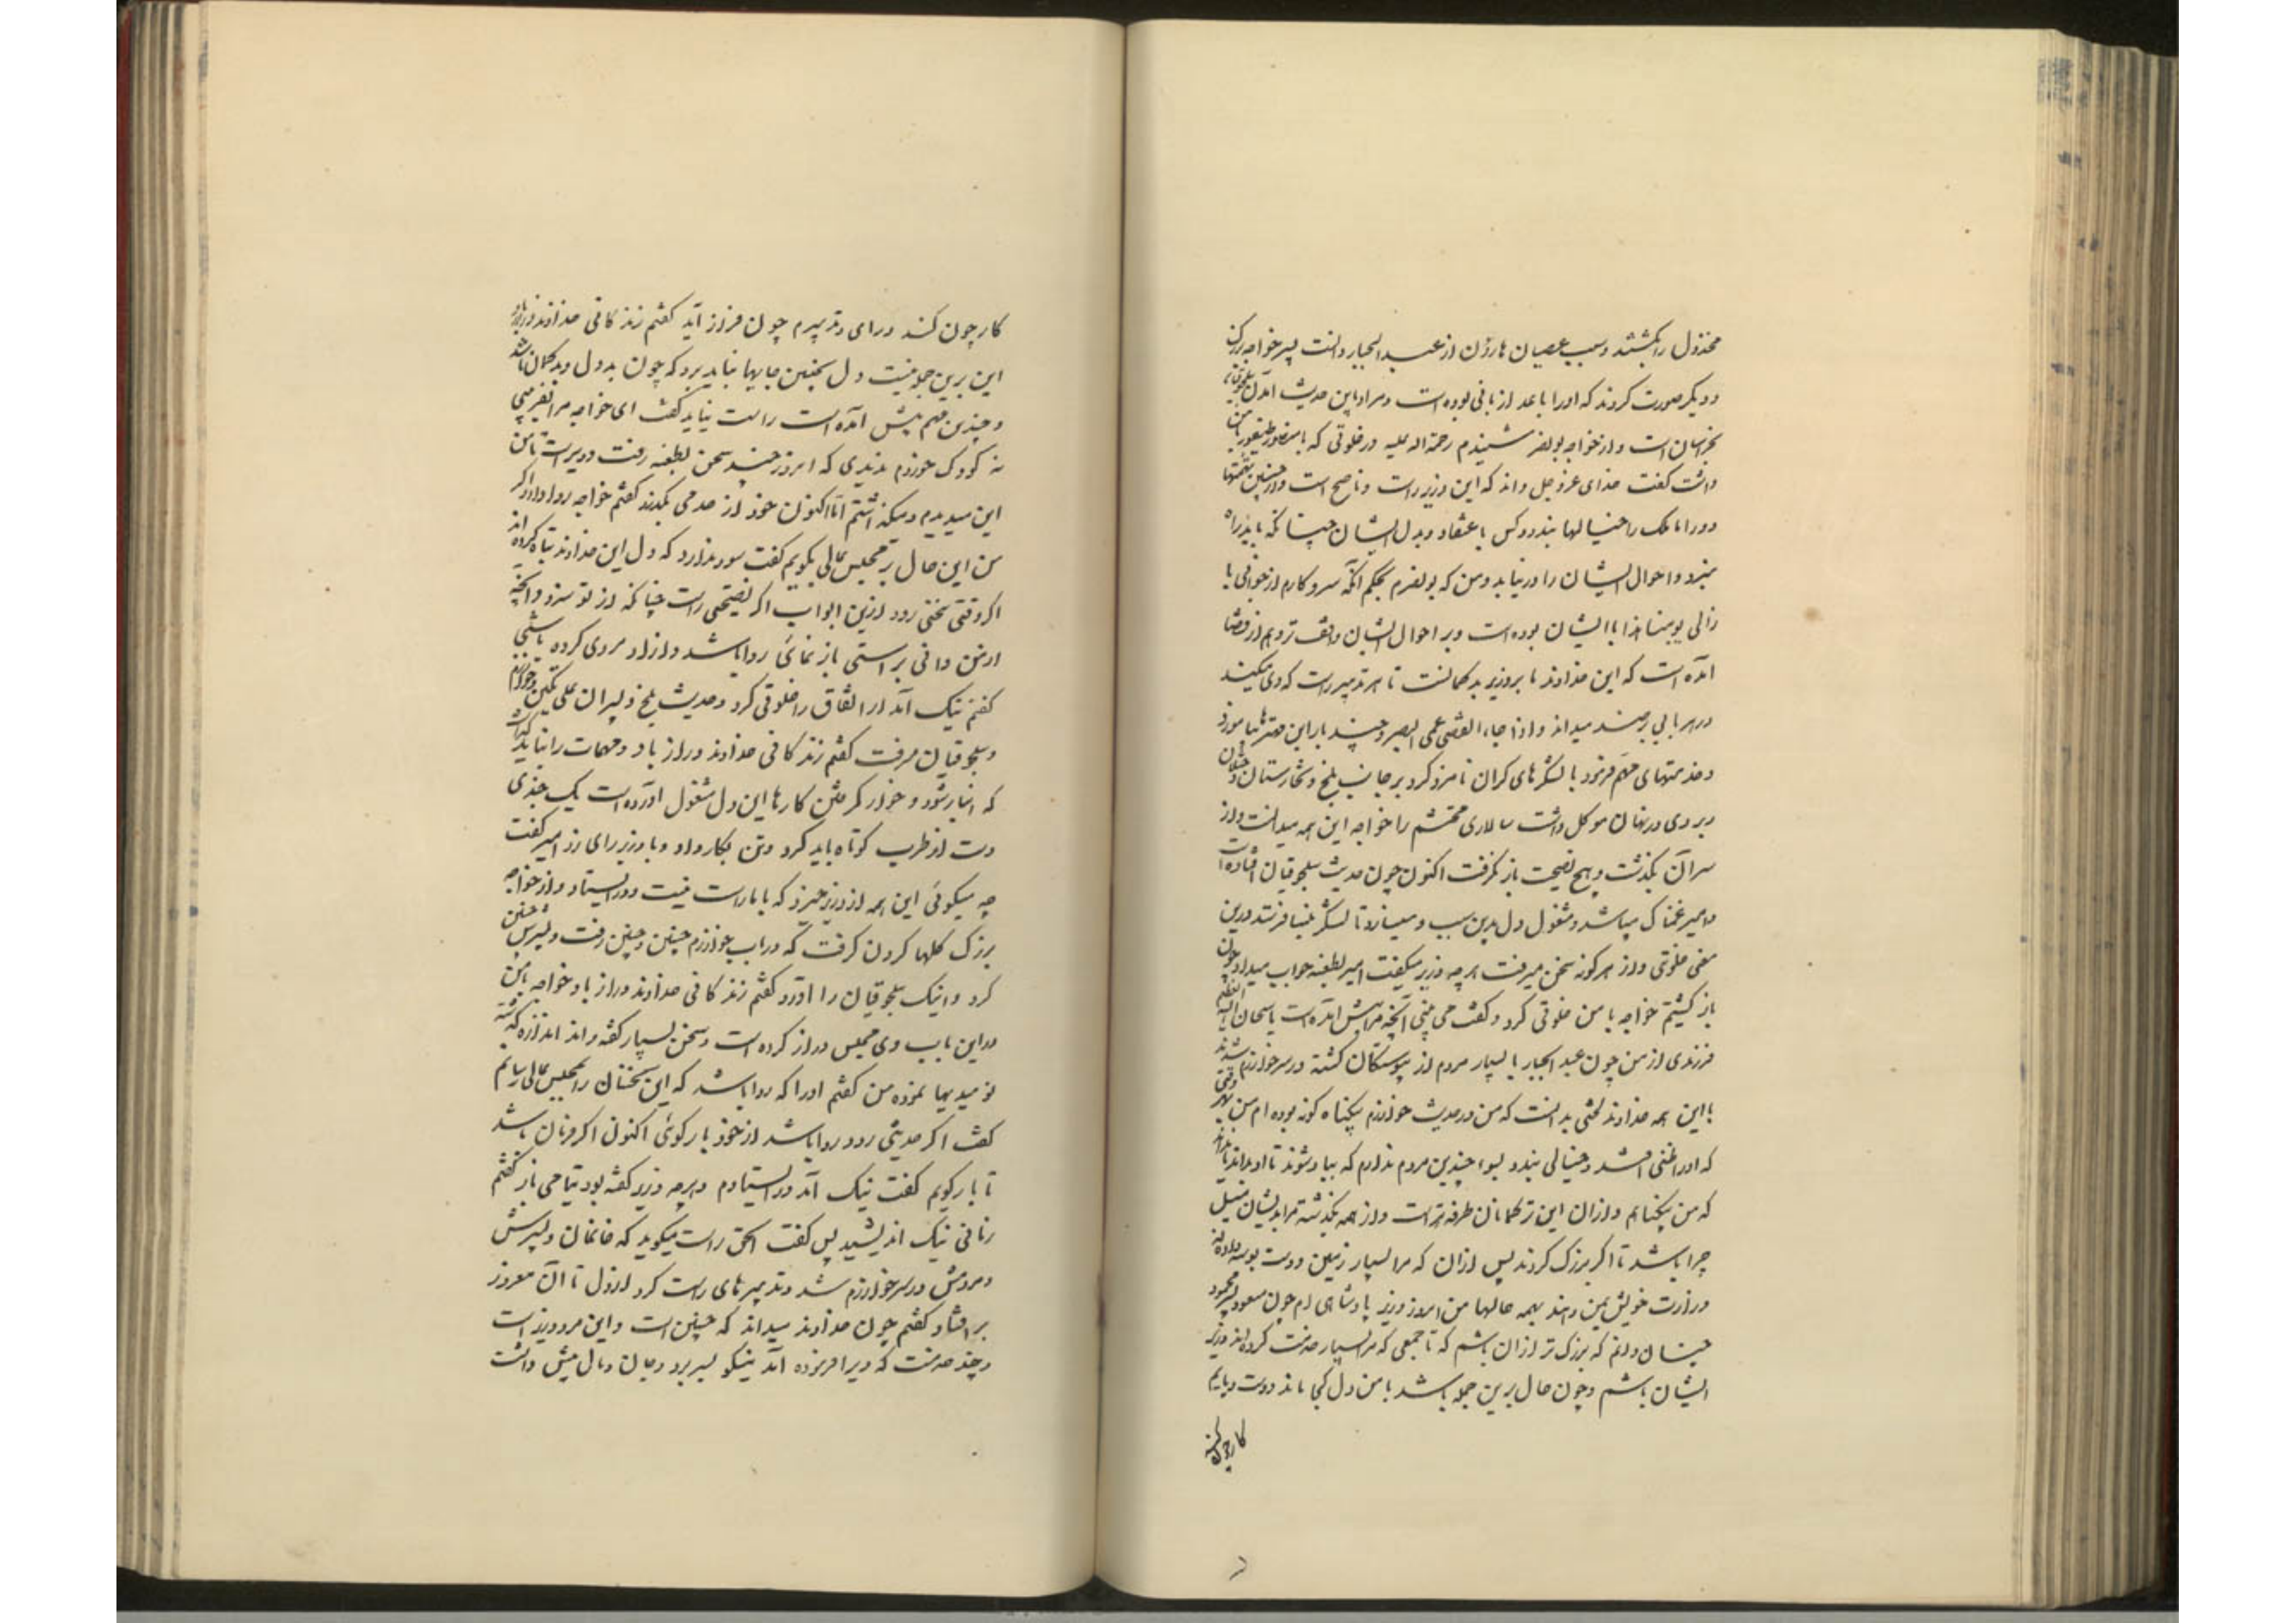 مخذول را بکشتند و سبب عصیان هارون از عبدالجبار دانست پسر خواجه بزرگ
و دیگر صورت کردند که او را با عدا زبانی بوده است و مراد باین حدیث آمدن سلجوقیان
بخراسان است و از خواجه بونصر شنیدم رحمة الله علیه در خلوتی که با منصور طیفور و با من
داشت گفت خدای عزوجل داند که این وزیر راست و ناصح است و از چنین تهمتها
دور اما ملک را خیالها بندد و کس باعتقاد و بدل ایشان چنانکه باید راه
نبرد و احوال ایشان را درنیابد و من که بونصرم بحکم آنکه سر و کارم از جوانی با
زالی یومنا هذا با ایشان بوده است و بر احوال ایشان واقف ترم و هم از قضا
آمده است که این خداوند ما بر وزیر بدگمانست تا هر تدبیر راست که وی میکند
در هر بابی بر ضد میداند و اذا جاء القضی عمی البصر و چند بار این مهتر را بیازمود
و خدمتهای مهم فرمود با لشکرهای گران نامزد کرد بر جانب بلخ و تخارستان و ختلان
و بر وی در نهان موکل داشت سالاری محتشم را خواجه این همه میدانست و از
سر آن بگذشت و هیچ نصیحت باز نگرفت اکنون چون حدیث سلجوقیان افتاده است
و امیر غمناک میباشد و مشغول دل بدین سبب و میسازد تا لشکر بنسا فرستد درین
معنی خلوتی و از هر گونه سخن میرفت هر چه وزیر میگفت امیر بطعنه جواب میداد چون
باز گشتیم خواجه با من خلوتی کرد و گفت می بینی آنچه مرا پیش آمده است یا سبحان الله العظیم
فرزندی از من چون عبدالجبار با بسیار مردم از پیوستگان کشته در سر خوارزم شدند
با این همه خداوند لختی بدانست که من در حدیث خوارزم بیگناه گونه بوده ام من بهر وقتی
که او را ظنی افتد و خیالی بندد بسوا چندین مردم ندارم که بباد شوند تا او بداند یا نداند
که من بیگناهم و از آن این ترکمانان طرفه تر است و از همه بگذشته مرا بدیشان میل
چرا باشد تا اگر بزرگ گردند پس از آن که مرا بسیار زمین و دست بوسه داده اند
وزارت خویش بمن دهند بهمه حالها من امروز وزیر پادشاهی ام چون مسعود پسر محمود
چنان دانم که بزرگ تر از آن باشم که تا جمعی که مرا بسیار خدمت کرده اند وزیر
ایشان باشم و چون حال برین جمله باشد با من دل کجا ماند و دست و پایم
کار چون کند
کار چون کند و رای و تدبیرم چون فراز آید گفتم زندگانی خداوند دراز باد
این برین جمله نیست دل بچنین جایها نباید برد که چون بد دل و بدگمان باشد
و چندین مهم پیش آمده است راست نیاید گفت ای خواجه مرا بفریبی
نه کودک خوردم ندیدی که امروز چند سخن بطعنه رفت و دیر است تا من
این میدیدم و میگذاشتم اما اکنون خود از حد می بگذرد گفتم خواجه روا دارد اگر
من این حال بر مجلس عالی بگویم گفت سود ندارد که دل این خداوند تباه کرده اند
اگر وقتی سخنی رود ازین ابواب اگر نصیحتی راست چنانکه از تو سزد و آنچه
از من دانی براستی باز نمائی روا باشد و آزاد مردی کرده باشی
گفتم نیک آید از اتفاق را خلوتی کرد و حدیث بلخ و پسران علی تکین و خوارزم
و سلجوقیان میرفت گفتم زندگانی خداوند دراز باد و مهمات را نباید گذاشت
که انبار شود و خوار گرفتن کارها این دل مشغول آورده است یک چندی
دست از طرب کوتاه باید کرد و تن بکار داد و با وزیر رای زد امیر گفت
چه میگوئی این همه از وزیر خیزد که با ما راست نیست و در ایستاد و از خواجه
بزرگ گلها کردن گرفت که در باب خوارزم چنین و چنین رفت و پسرش چنین
کرد و اینک سلجوقیان را آورد گفتم زندگانی خداوند دراز باد خواجه با من
در این باب وی مجلس دراز کرده است و سخن بسیار گفته و از اندازه گذشته
نومیدیها نموده من گفتم او را که روا باشد که این سخنان را بمجلس عالی رسانم
گفت اگر حدیثی رود روا باشد از خود باز گوئی اکنون اگر فرمان باشد
تا باز گویم گفت نیک آید در ایستادم و هر چه وزیر گفته بود بتمامی باز گفتم
زمانی نیک اندیشید پس گفت الحق راست میگوید که خانمان و پسرش
و مردمش در سر خوارزم شد و تدبیرهای راست کرد از اول تا آن مغرور
بر افتاد گفتم چون خداوند میداند که چنین است و این مرد وزیر است
و چند خدمت که ویرا فرموده آمد نیکو بسر برد و جان و مال پیش داشت